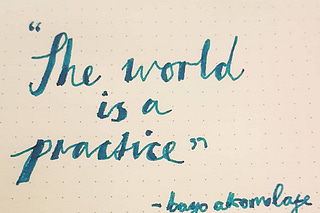 “The world
is a
practice”
- bayo akomolafe